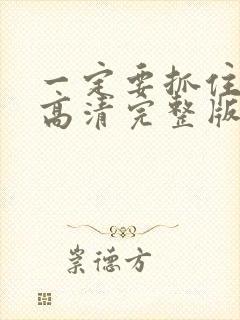 一定要抓住
高清完整版
崇德方